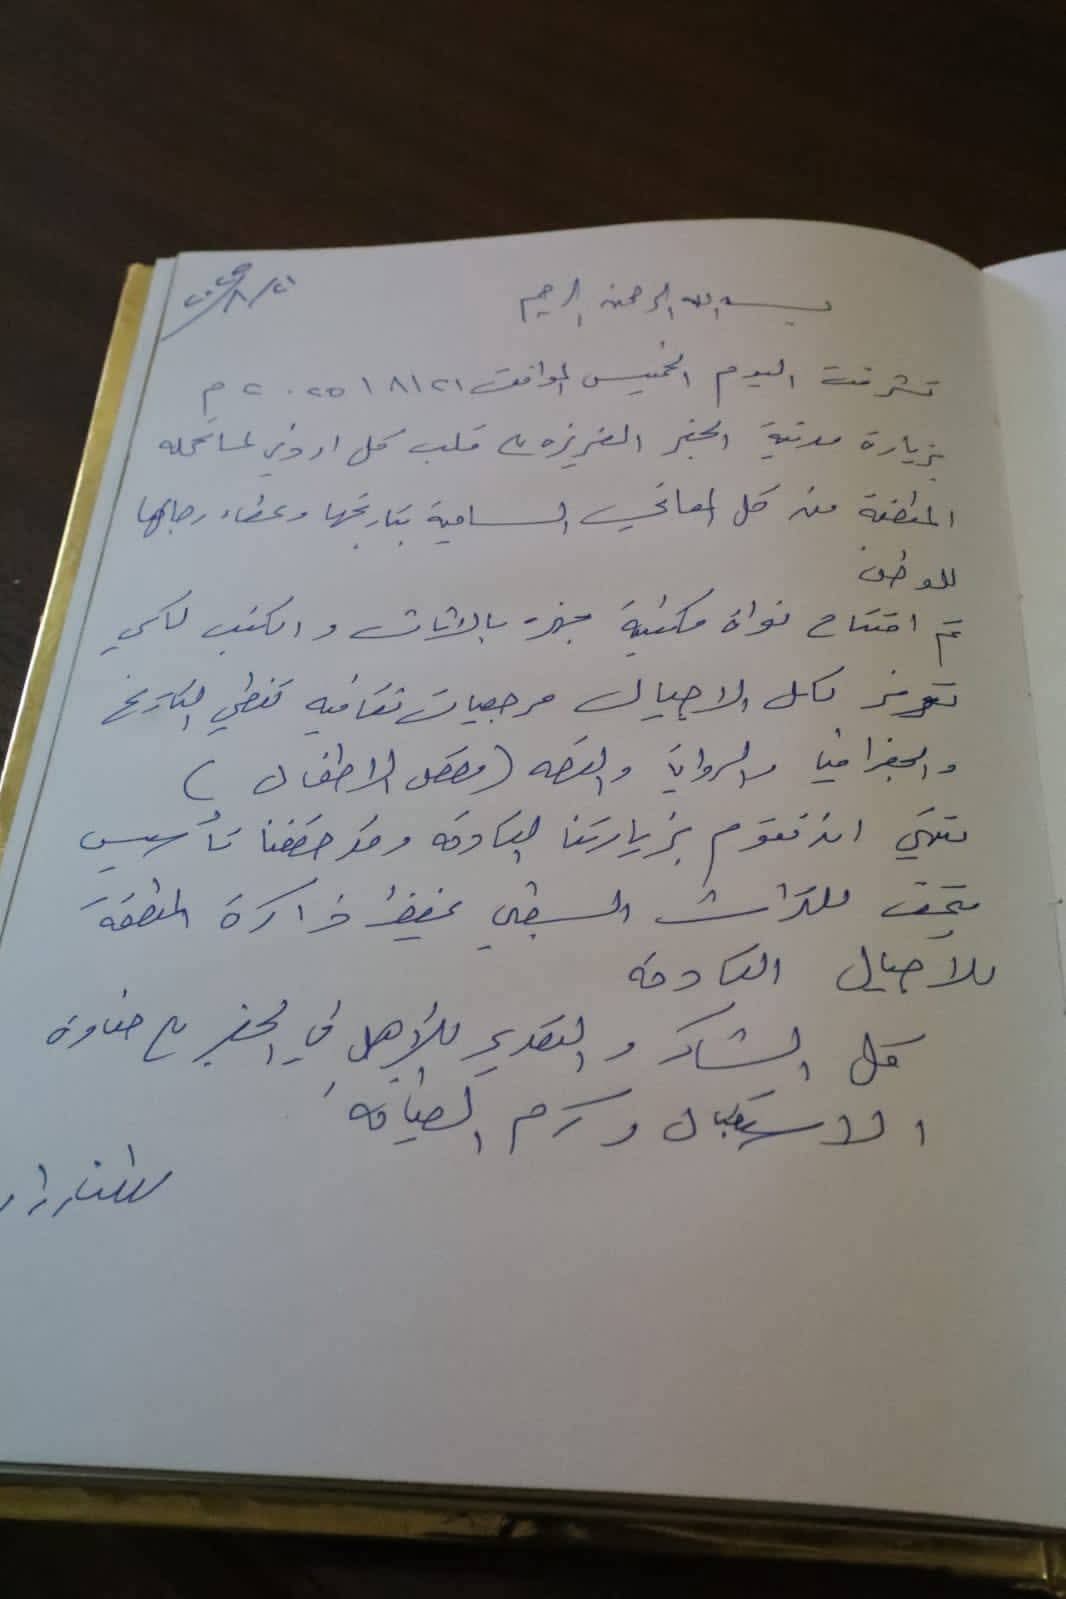 ٢٠٢٥/٨/٢١
بسم الله الرحمن الرحيم
تشرفت اليوم الخميس الموافق ٢١/٨/٢٠٢٥ م
بزيارة مدينة الجفر العزيزه على قلب كل اردني لما تحمله
المنطقة من كل المعاني السامية بتاريخها وعطاء رجالها
للوطن
تم افتتاح نواة مكتبة مجهزة بالاثاث و الكتب لكي
تعزز لكل الاجيال مرجعيات ثقافيه تغطي التاريخ
والجغرافيا والرواية والقصه ( وقصص الاطفال )
نتمنى ان نقوم بزيارتنا القادمه وقد حققنا تأسيس
متحف للتراث الشعبي يحفظ ذاكرة المنطقة
للاجيال القادمه
كل الشكر و التقدير للأهل في الجفر على حفاوة
الاستقبال وكرم الضيافه